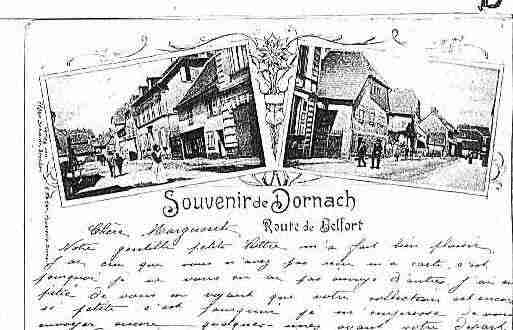 Souvenir de Dornach
Route de Belfort
Chère Marguerite
Notre gentille petite lettre m'a fait bien plaisir
j'ai cru que vous n'avez pas reçu ma carte c'est
pourquoi je ne vous en ai pas envoyé d'autres j'ai
pitié de vous en voyant que votre collection est encore
si petite c'est pourquoi je m'empresse de vous
envoyer encore quelques-unes avant votre départ